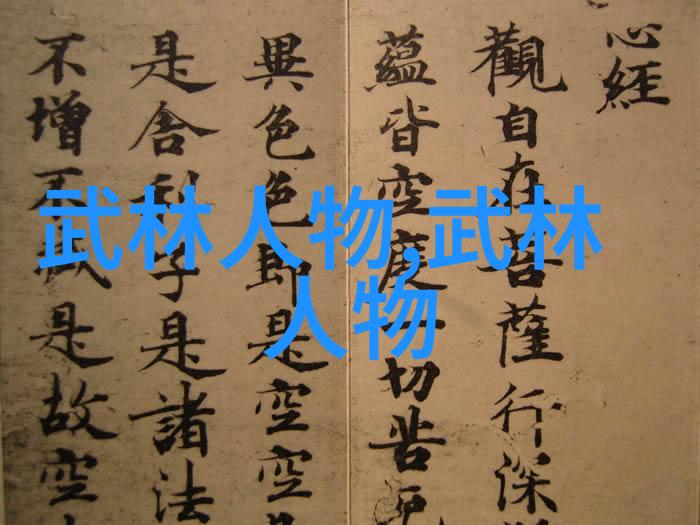 心經
觀自在菩薩行深
蘊皆空度一切苦厄
異色色即是空空
是舍利子是諸法
不增不減是故空
武林人物,武林
人物